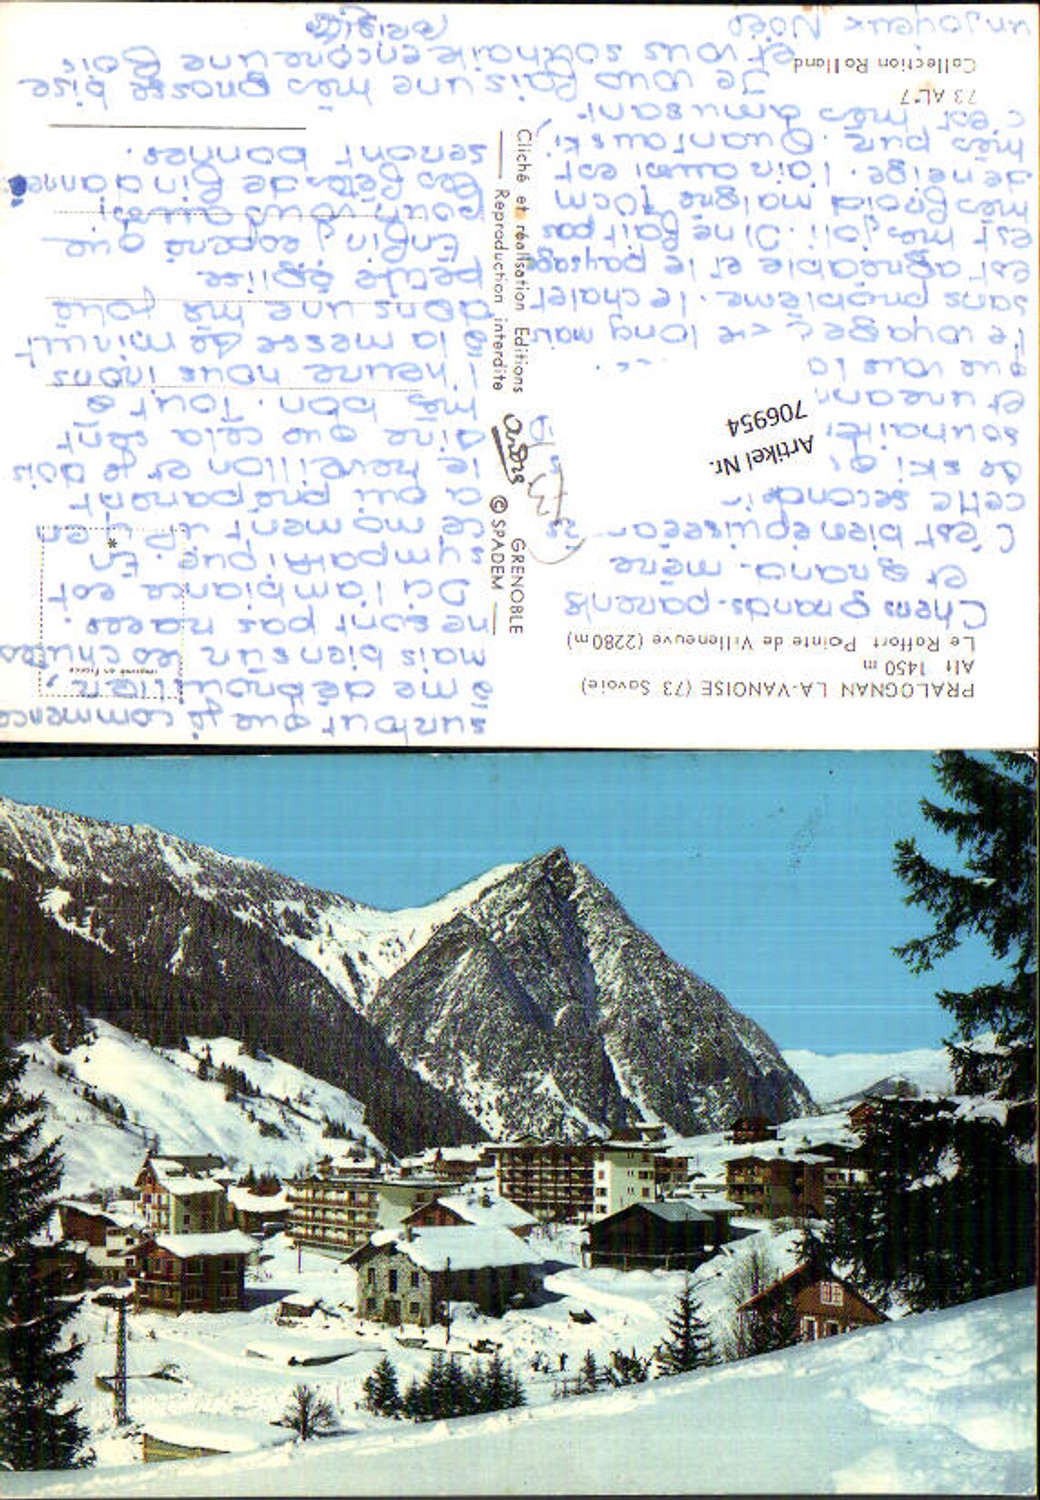 PRALOGNAN LA-VANOISE (73 Savoie)
Alt 1450 m
Le Roffort Pointe de Villeneuve (2280m)
Chers grands-parents
et grand-mère
C'est bien épuisée
cette seconde
de ski q
souhaiter
et un ann
que vous la
le voyage c'
long mais
sans problème. le chalet
est agréable et le paysage
est très joli. Il ne fait pas
très froid malgré 70cm
de neige. l'air aussi est
très pur. Quant au ski,
c'est très amusant
73 AL 7
Collection Rolland
Je vous fais une très grosse bise
et vous souhaite encore une fois
un joyeux Noël
Artikel Nr.
706954
GRENOBLE
Cliché et réalisation Editions
André © SPADEM
Reproduction interdite
surtout que je commence
à me débrouiller,
mais bien sûr les chutes
ne sont pas rares.
Du l'ambiance est
sympathique. En
ce moment
a qui préparent
le réveillon et je dois
dire que cela sent
très bon. Tout à
l'heure nous irons
à la messe de minuit
dans une très
petite église
Enfin j'espère que
pour vous aussi
les fêtes de fin d'année
seront bonnes.
Imprimé en France